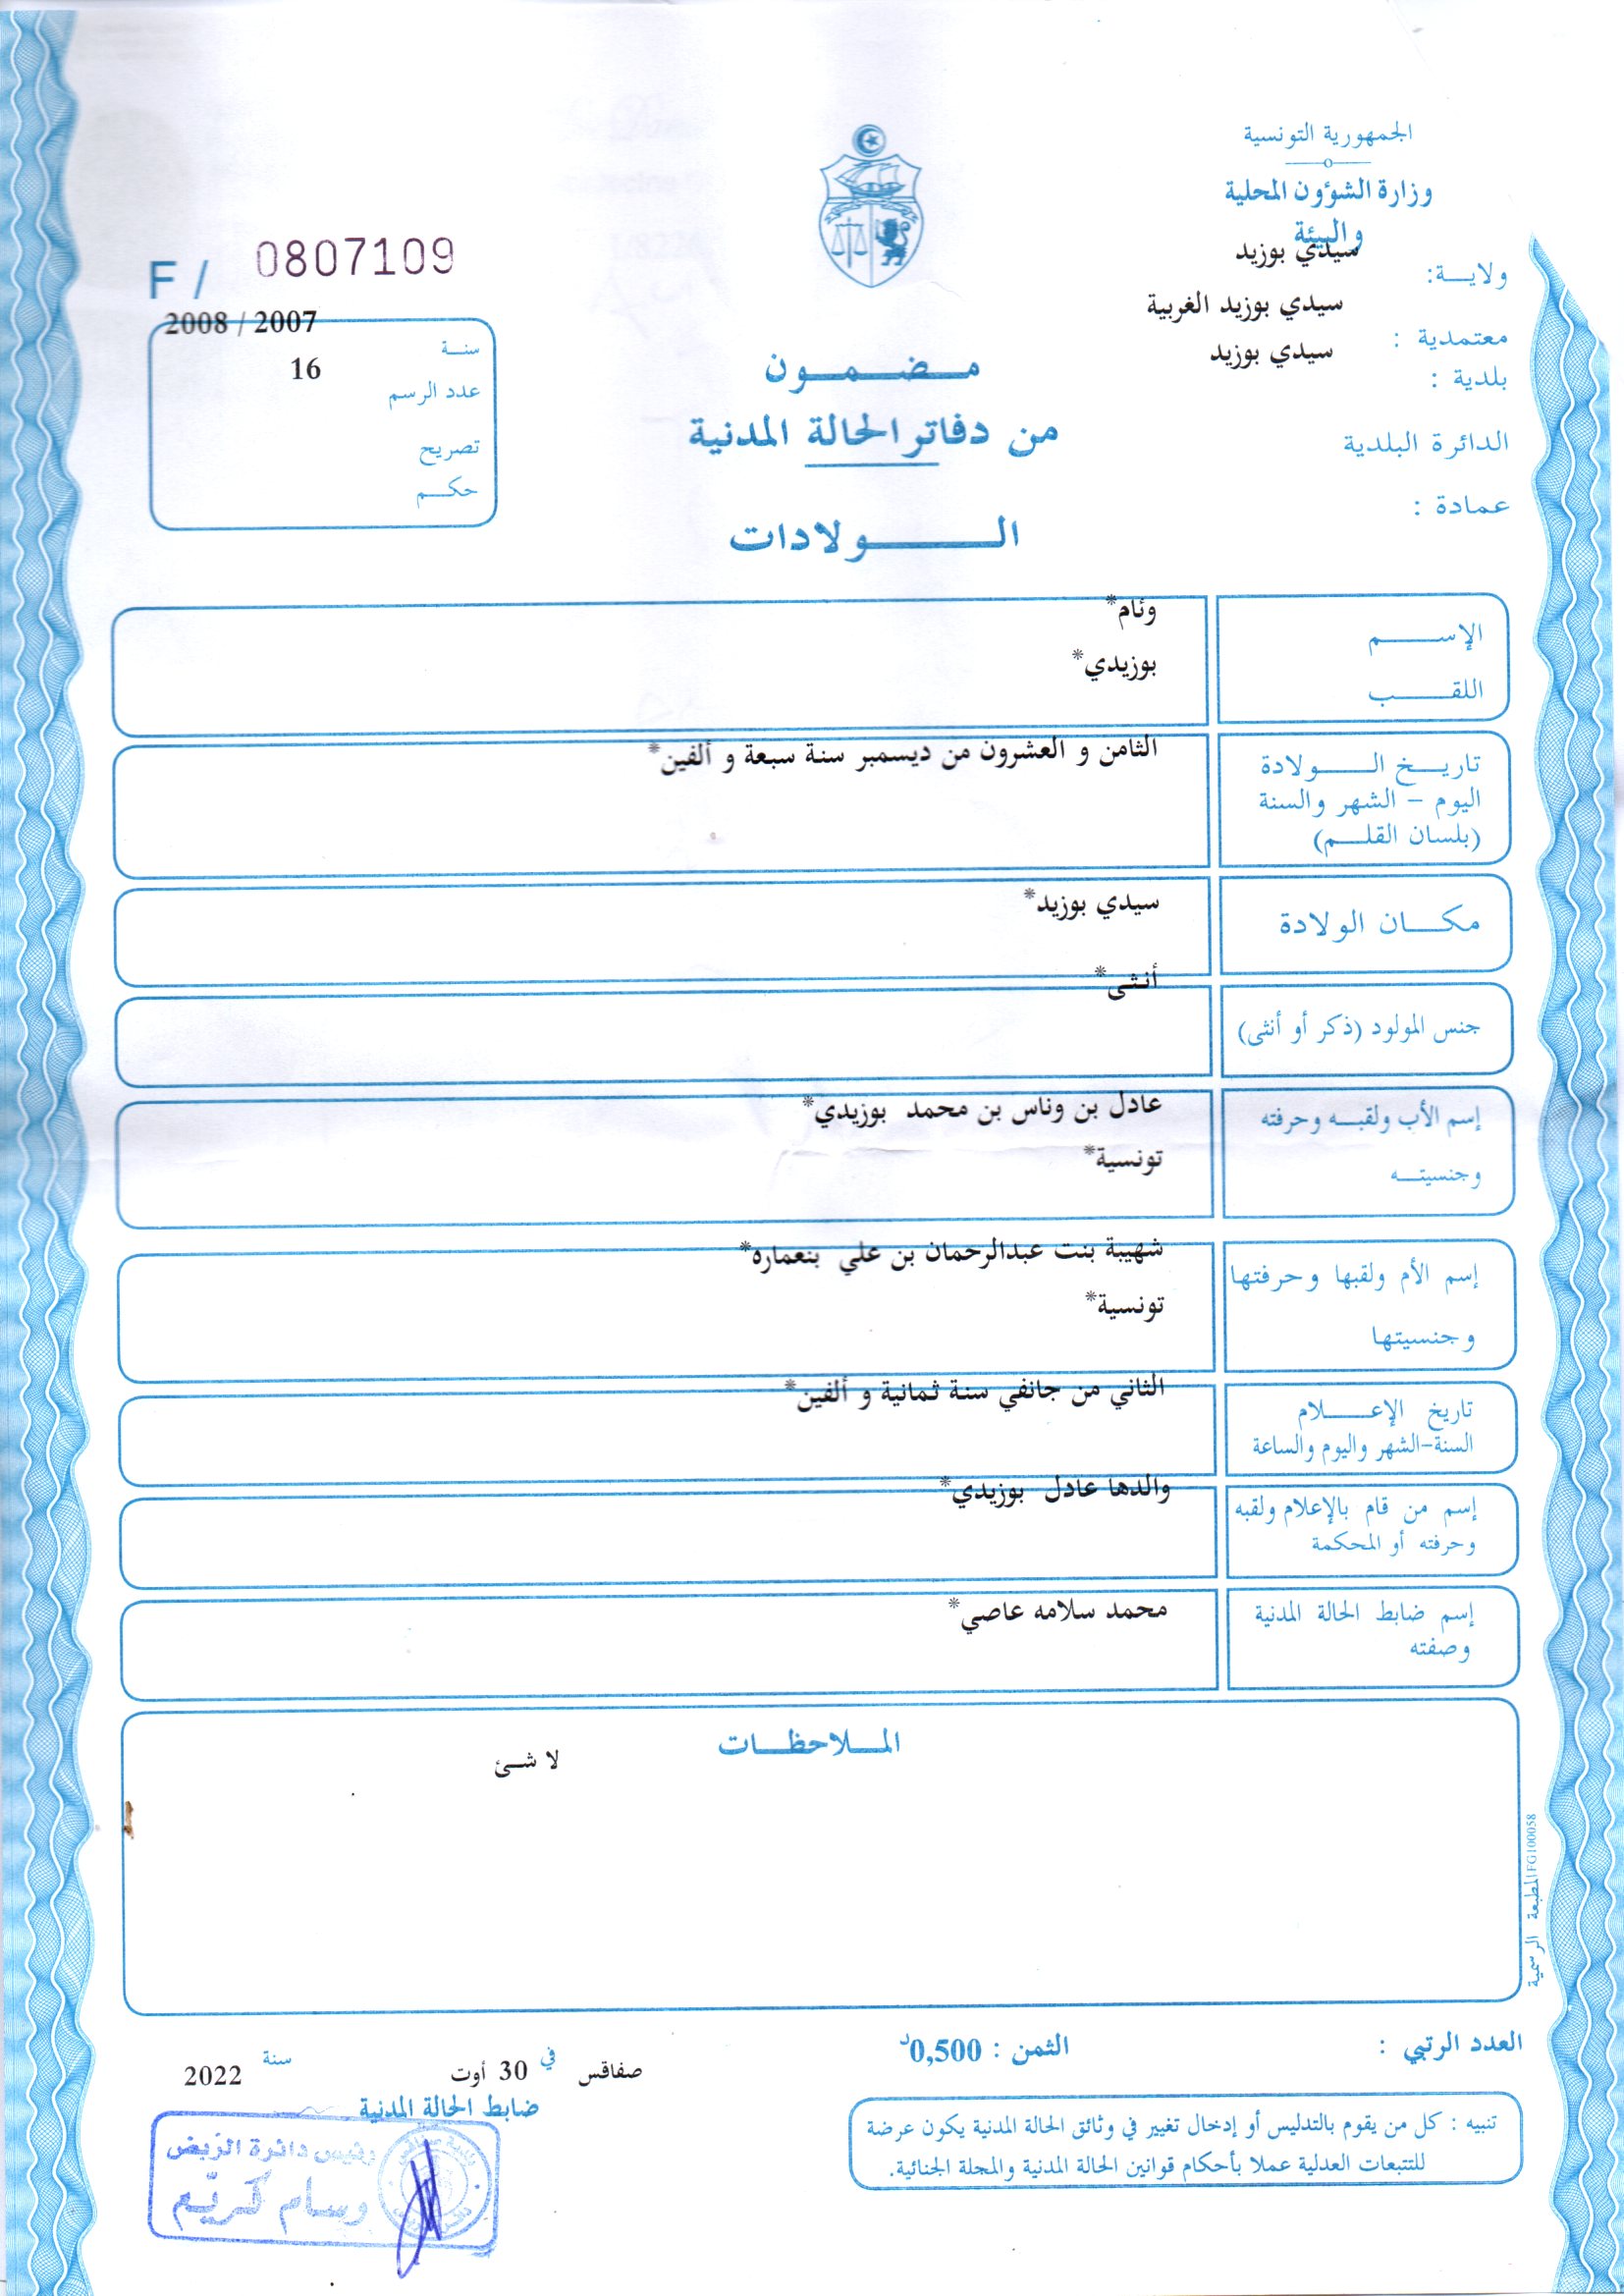 الجمهورية التونسية
وزارة الشؤون المحلية
والبيئة
ولايـــة: سيدي بوزيد
معتمدية : سيدي بوزيد الغربية
بلدية : سيدي بوزيد
الدائرة البلدية
عمادة :
مـــضـــمـــون
من دفاتر الحالة المدنية
الـــــــولادات
F / 0807109
2008 / 2007
سنــة
16
عدد الرسم
تصريح
حكــم
الإســــــم
وئام*
اللقـــــب
بوزيدي*
تاريــخ الـــــولادة
اليوم – الشهر والسنة
(بلسان القلـــم)
الثامن و العشرون من ديسمبر سنة سبعة و ألفين*
مكـــان الولادة
سيدي بوزيد*
جنس المولود (ذكر أو أنثى)
أنثى*
إسم الأب ولقبــه وحرفته
وجنسيتــه
عادل بن وناس بن محمد بوزيدي*
تونسية*
إسم الأم ولقبها وحرفتها
وجنسيتها
شهيبة بنت عبدالرحمان بن علي بنعماره*
تونسية*
تاريخ الإعـــلام
السنة-الشهر واليوم والساعة
الثاني من جانفي سنة ثمانية و ألفين*
إسم من قام بالإعلام ولقبه
وحرفته أو المحكمة
والدها عادل بوزيدي*
إسم ضابط الحالة المدنية
وصفته
محمد سلامه عاصي*
المــلاحظــات
لا شئ
المطبعة الرسمية FG100058
العدد الرتبي :
الثمن : 0,500د
صفاقس في 30 أوت سنة 2022
ضابط الحالة المدنية
رئيس دائرة الربض
وسام كريّم
تنبيه : كل من يقوم بالتدليس أو إدخال تغيير في وثائق الحالة المدنية يكون عرضة
للتتبعات العدلية عملا بأحكام قوانين الحالة المدنية والمجلة الجنائية.